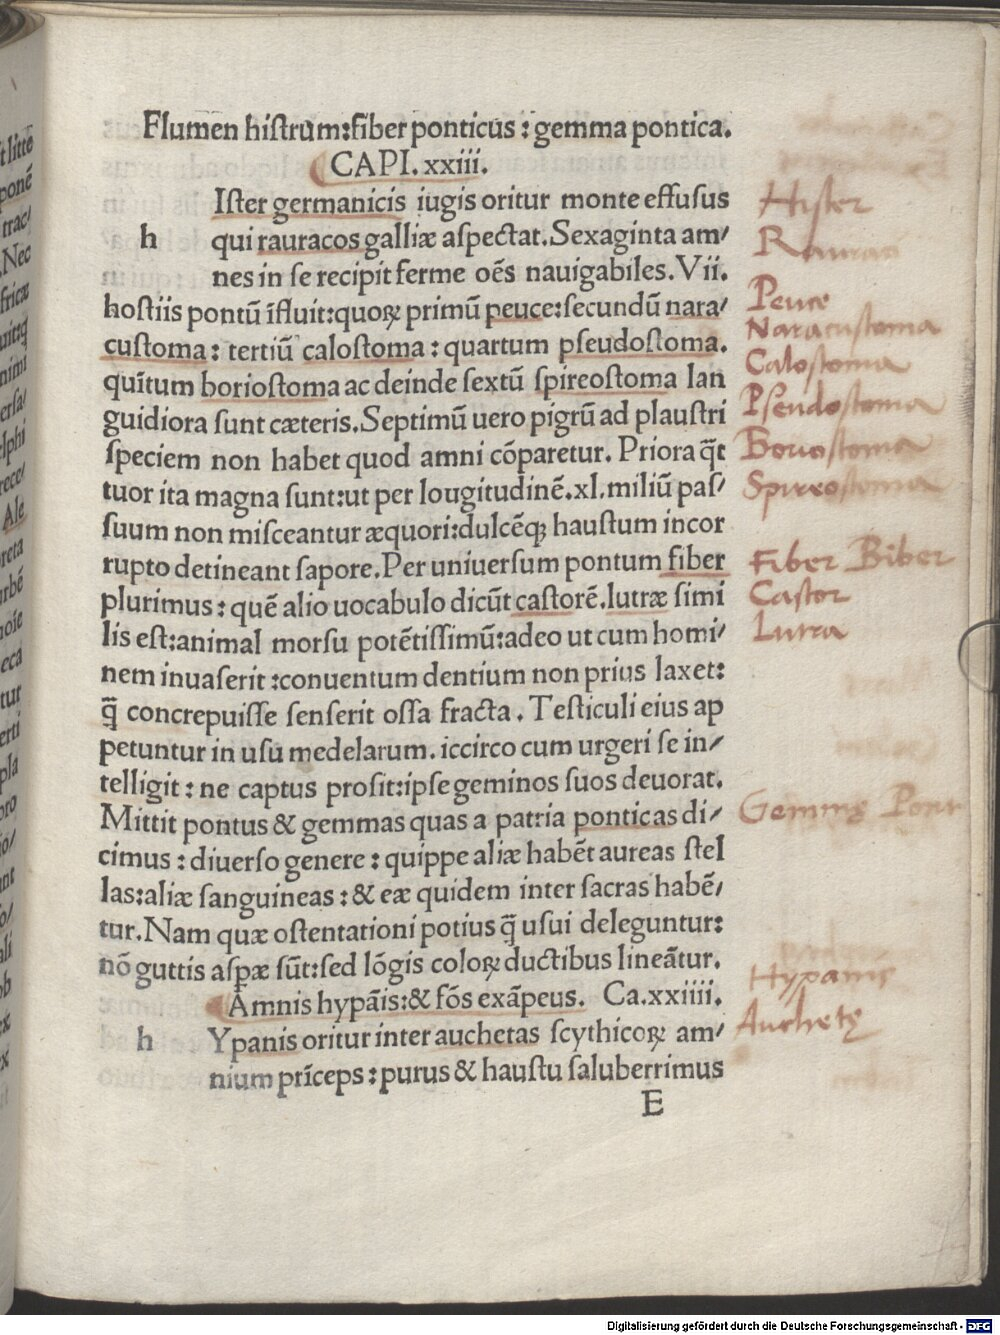 Flumen histrum:fiber ponticus : gemma pontica.
CAPI. xxiii.
Ister germanicis iugis oritur monte effusus
h qui rauracos galliæ aspectat. Sexaginta am/
nes in se recipit ferme oēs nauigabiles. Vii.
hostiis pontū īfluit:quoꝝ primū peuce:secundū nara/
customa: tertiū calostoma : quartum pseudostoma.
quītum boriostoma ac deinde sextū spireostoma lan
guidiora sunt cæteris. Septimū uero pigrū ad plaustri
speciem non habet quod amni cōparetur. Priora q̄t
tuor ita magna sunt:ut per lougitudinē.xl.miliū pas/
suum non misceantur æquori:dulcēqꝫ haustum incor
rupto detineant sapore. Per uniuersum pontum fiber
plurimus : quē alio uocabulo dicūt castorē.lutræ simi
lis est:animal morsu potētissimū:adeo ut cum homi/
nem inuaserit :conuentum dentium non prius laxet:
q̄ concrepuisse senserit ossa fracta . Testiculi eius ap
petuntur in usu medelarum. iccirco cum urgeri se in/
telligit : ne captus prosit:ipse geminos suos deuorat.
Mittit pontus & gemmas quas a patria ponticas di/
cimus : diuerso genere : quippe aliæ habēt aureas stel
las:aliæ sanguineas : & eæ quidem inter sacras habē/
tur. Nam quæ ostentationi potius q̄ usui deleguntur:
nō guttis aspæ sūt:sed lōgis coloꝝ ductibus lineātur.
Amnis hypāis:& fōs exāpeus. Ca.xxiiii.
h Ypanis oritur inter auchetas scythicoꝝ am/
nium prīceps : purus & haustu saluberrimus
E
Hister
Rauraci
Peuce
Naracustoma
Calostoma
Pseudostoma
Boriostoma
Spireostoma
Fiber Biber
Castor
Lutra
Gemmę Pont
Hypanis
Auchetę
Digitalisierung gefördert durch die Deutsche Forschungsgemeinschaft - DFG